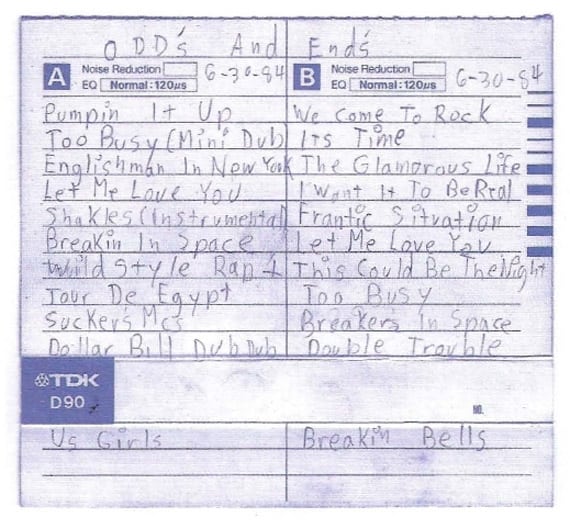 ODD's And Ends
A Noise Reduction 6-30-84 B Noise Reduction 6-30-84
EQ Normal:120µs EQ Normal:120µs
Pumpin It Up We Come To Rock
Too Busy (Mini Dub) Its Time
Englishman In New York The Glamorous Life
Let Me Love You I Want It To Be Real
Shakles (Instrumental) Frantic Situation
Breakin In Space Let Me Love You
Wild Style Rap This Could Be The Night
Tour De Egypt Too Busy
Suckers Mcs Breakers In Space
Dollar Bill Dub Dub Double Trouble
TDK
D90 NO.
Us Girls Breakin Bells